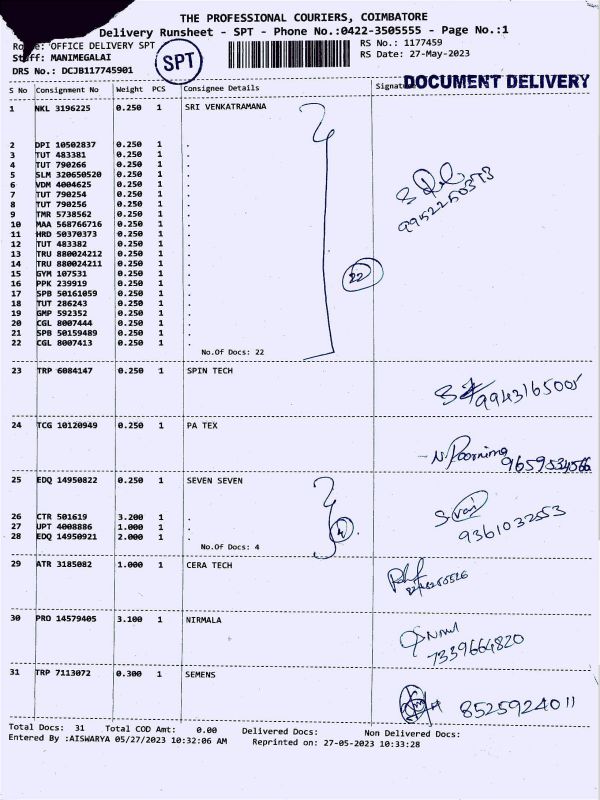 THE PROFESSIONAL COURIERS, COIMBATORE
Delivery Runsheet - SPT - Phone No.:0422-3505555 - Page No.:1
OFFICE DELIVERY SPT
Staff: MANIMEGALAI
DRS No.: DCJB117745901
SPT
RS No.: 1177459
RS Date: 27-May-2023
DOCUMENT DELIVERY
S No Consignment No Weight PCS Consignee Details
1 NKL 3196225 0.250 1 SRI VENKATRAMANA
2 DPI 10502837 0.250 1 .
3 TUT 483381 0.250 1 .
4 TUT 790266 0.250 1 .
5 SLM 320650520 0.250 1 .
6 VDM 4004625 0.250 1 .
7 TUT 790254 0.250 1 .
8 TUT 790256 0.250 1 .
9 TMR 5738562 0.250 1 .
10 MAA 568766716 0.250 1 .
11 HRD 50370373 0.250 1 .
12 TUT 483382 0.250 1 .
13 TRU 880024212 0.250 1 .
14 TRU 880024211 0.250 1 .
15 GYM 107531 0.250 1 .
16 PPK 239919 0.250 1 .
17 SPB 50161059 0.250 1 .
18 TUT 286243 0.250 1 .
19 GMP 592352 0.250 1 .
20 CGL 8007444 0.250 1 .
21 SPB 50159489 0.250 1 .
22 CGL 8007413 0.250 1 .
22
No.Of Docs: 22
23 TRP 6084147 0.250 1 SPIN TECH
9943165005
24 TCG 10120949 0.250 1 PA TEX
N. Poornima 9659534566
25 EDQ 14950822 0.250 1 SEVEN SEVEN
26 CTR 501619 3.200 1 .
27 UPT 4008886 1.000 1 .
28 EDQ 14950921 2.000 1 .
4
9361032553
No.Of Docs: 4
29 ATR 3185082 1.000 1 CERA TECH
30 PRO 14579405 3.100 1 NIRMALA
7339664820
31 TRP 7113072 0.300 1 SEMENS
8525924011
Total Docs: 31 Total COD Amt: 0.00 Delivered Docs: Non Delivered Docs:
Entered By :AISWARYA 05/27/2023 10:32:06 AM Reprinted on: 27-05-2023 10:33:28